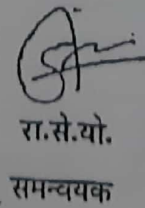 रा.से.यो.
समन्वयक